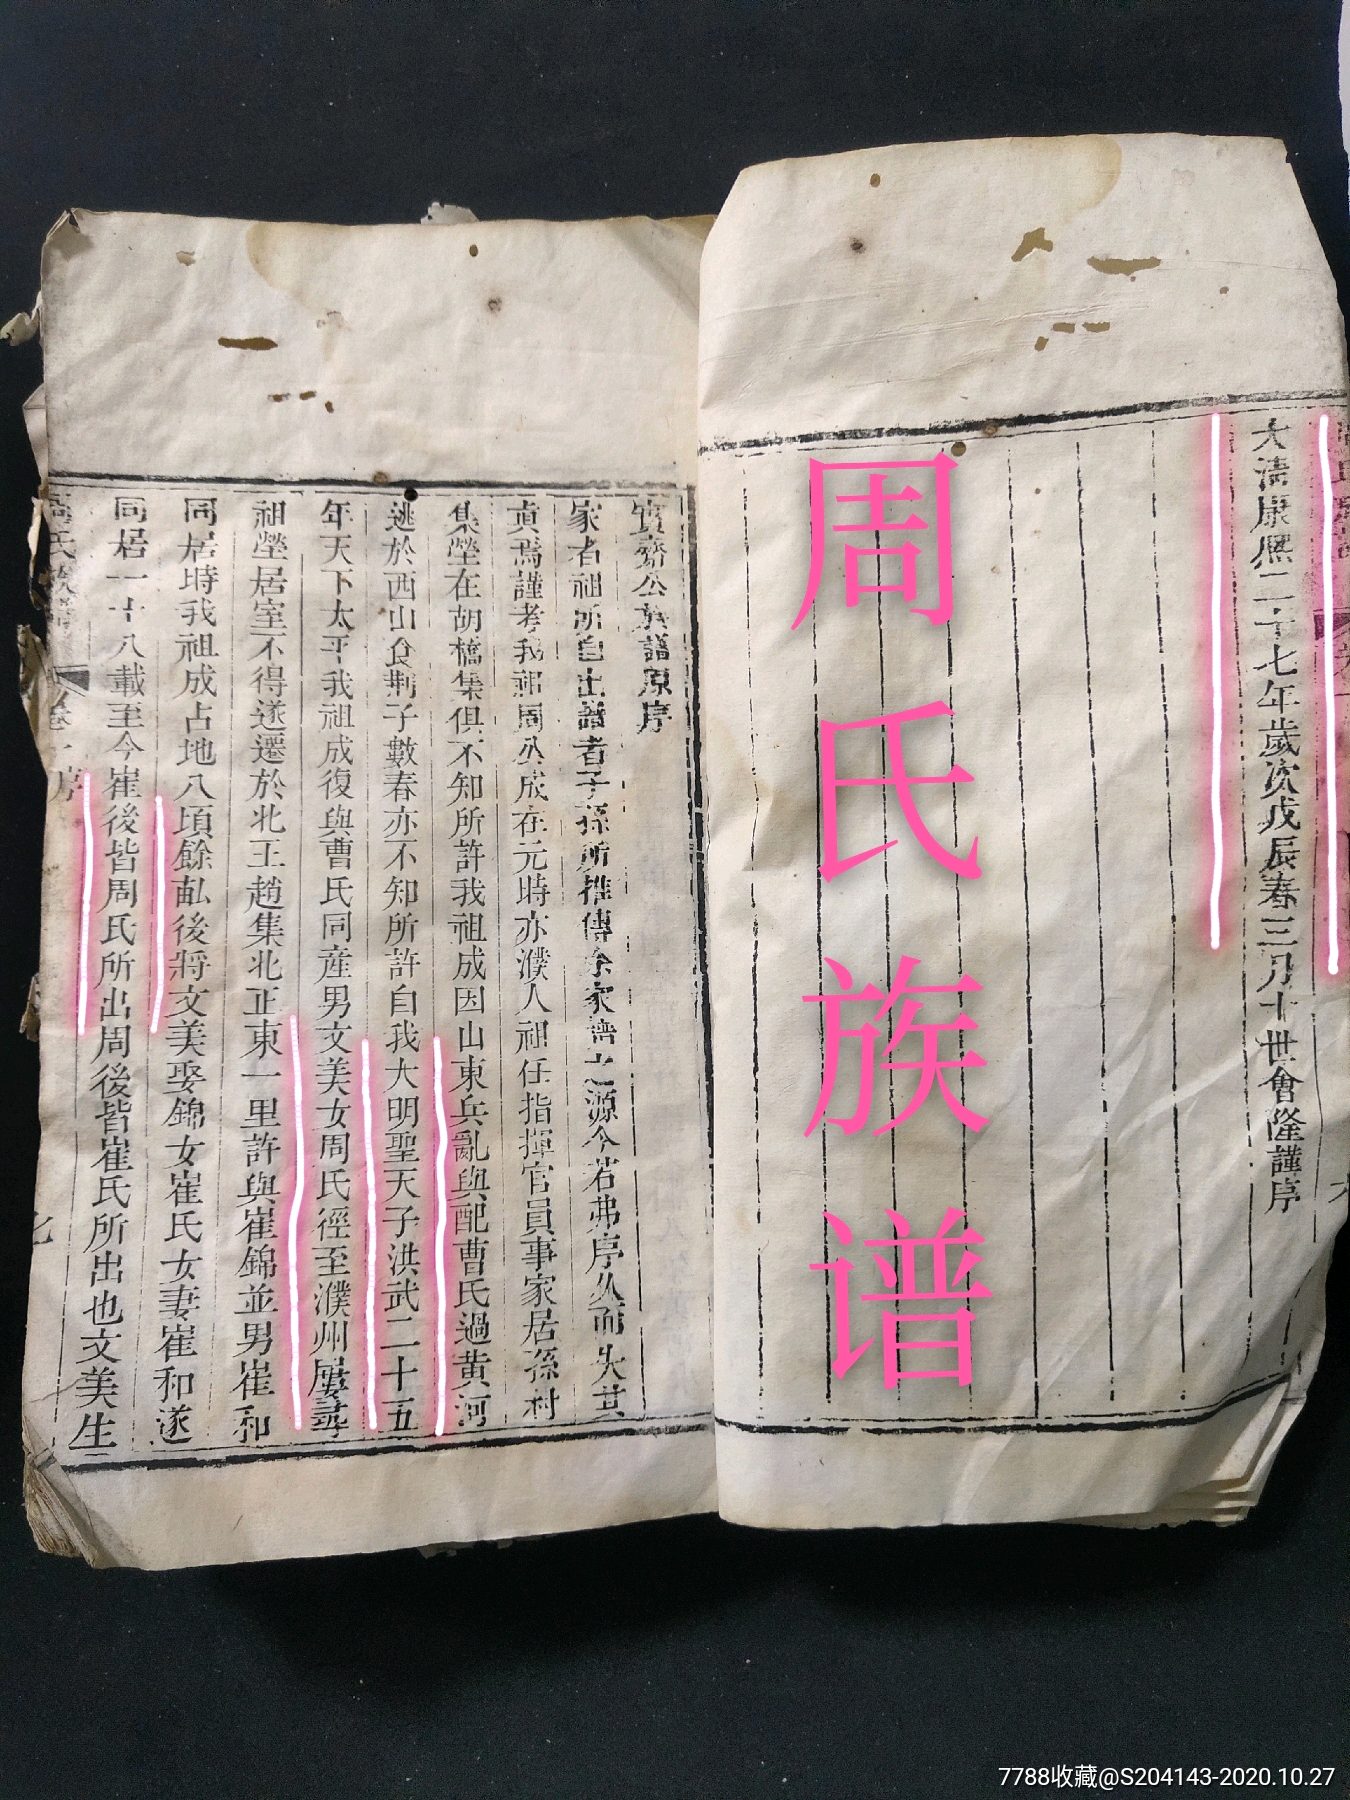 大清康熙二十七年歲次戊辰春三月十世會隆謹序
周氏族谱
實齋公族譜原序
家者祖所自出譜者子孫所推傳余家譜之源今若弗序久而失其
真焉謹考我祖周公成在元時亦濮人祖任指揮官員事家居孫村
集塋在胡橋集俱不知所許我祖成因山東兵亂與配曹氏過黃河
逃於西山食荆子數春亦不知所許自我大明聖天子洪武二十五
年天下太平我祖成復與曹氏同産男文美女周氏徑至濮州屢尋
祖塋居室不得遂遷於北王趙集北正東一里許與崔錦並男崔和
同居時我祖成占地八頃餘畝後將文美娶錦女崔氏女妻崔和遂
同居一十八載至今崔後皆周氏所出周後皆崔氏所出也文美生
周氏族譜 卷一序 七
7788收藏@S204143-2020.10.27